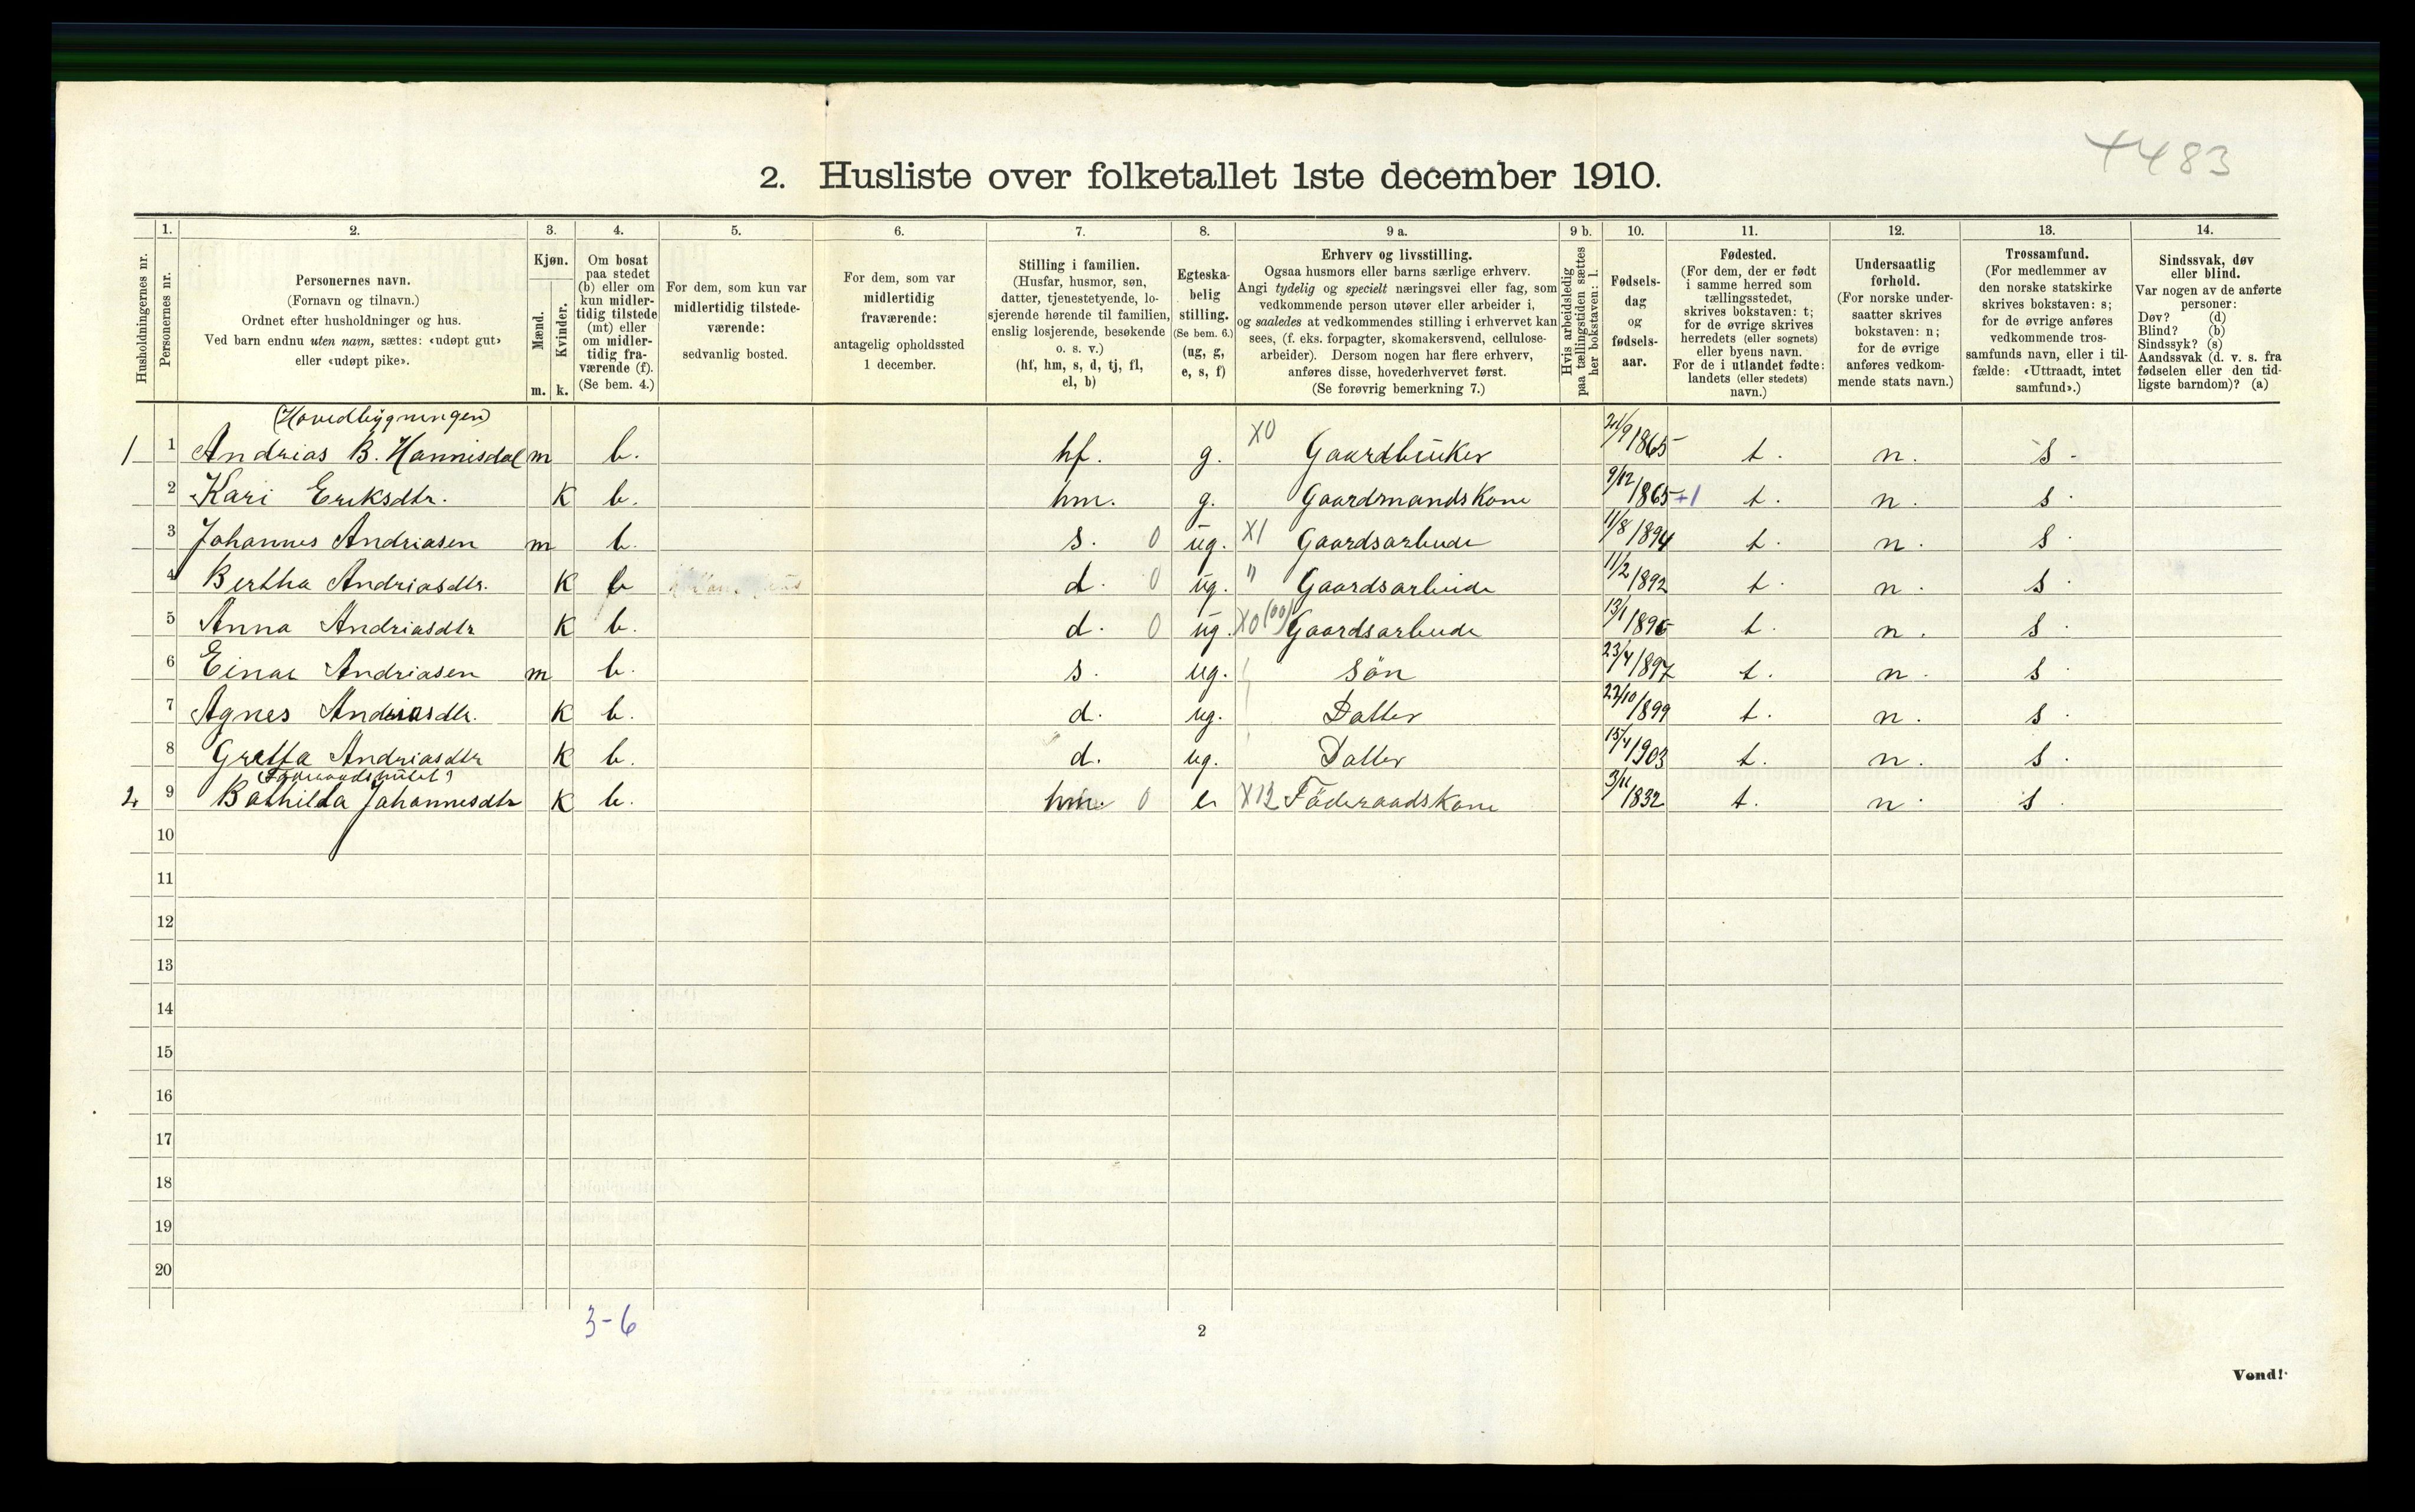 4483
2. Husliste over folketallet 1ste december 1910.
Husholdningernes nr.
1.
Personernes nr.
2.
Personernes navn.
(Fornavn og tilnavn.)
Ordnet efter husholdninger og hus.
Ved barn endnu uten navn, sættes: «udøpt gut»
eller «udøpt pike».
3.
Kjøn.
Mænd.
Kvinder.
m. k.
4.
Om bosat
paa stedet
(b) eller om
kun midler-
tidig tilstede
(mt) eller
om midler-
tidig fra-
værende (f).
(Se bem. 4.)
5.
For dem, som kun var
midlertidig tilstede-
værende:
sedvanlig bosted.
6.
For dem, som var
midlertidig
fraværende:
antagelig opholdssted
1 december.
7.
Stilling i familien.
(Husfar, husmor, søn,
datter, tjenestetyende, lo-
sjerende hørende til familien,
enslig losjerende, besøkende
o. s. v.)
(hf, hm, s, d, tj, fl,
el, b)
8.
Egteska-
belig
stilling.
(Se bem. 6.)
(ug, g,
e, s, f)
9 a.
Erhverv og livsstilling.
Ogsaa husmors eller barns særlige erhverv.
Angi tydelig og specielt næringsvei eller fag, som
vedkommende person utøver eller arbeider i,
og saaledes at vedkommendes stilling i erhvervet kan
sees, (f. eks. forpagter, skomakersvend, cellulose-
arbeider). Dersom nogen har flere erhverv,
anføres disse, hovederhvervet først.
(Se forøvrig bemerkning 7.)
9 b.
Hvis arbeidsledig
paa tællingstiden sættes
her bokstaven: l.
10.
Fødsels-
dag
og
fødsels-
aar.
11.
Fødested.
(For dem, der er født
i samme herred som
tællingsstedet,
skrives bokstaven: t;
for de øvrige skrives
herredets (eller sognets)
eller byens navn.
For de i utlandet fødte:
landets (eller stedets)
navn.)
12.
Undersaatlig
forhold.
(For norske under-
saatter skrives
bokstaven: n;
for de øvrige
anføres vedkom-
mende stats navn.)
13.
Trossamfund.
(For medlemmer av
den norske statskirke
skrives bokstaven: s;
for de øvrige anføres
vedkommende tros-
samfunds navn, eller i til-
fælde: «Uttraadt, intet
samfund».)
14.
Sindssvak, døv
eller blind.
Var nogen av de anførte
personer:
Døv? (d)
Blind? (b)
Sindssyk? (s)
Aandssvak (d. v. s. fra
fødselen eller den tid-
ligste barndom)? (a)
(Hovedbygningen)
1 1 Andrias B. Hannisdal m b. hf. g. X0 Gaardbruker 21/9 1865 t. n. s.
2 Kari Eriksdtr. K b. hm. g. Gaardmandskone 9/12 1865 +1 t. n. s.
3 Johannes Andriasen m b. s. 0 ug. X1 Gaardsarbeide 11/8 1894 t. n. s.
4 Bertha Andriasdtr. K b d. 0 ug. " Gaardsarbeide 11/2 1892 t. n. s.
5 Anna Andriasdtr K b. d. 0 ug. X0 (00) Gaardsarbeide 13/1 1896 t. n. s.
6 Einar Andriasen m b. s. ug. Sön 23/4 1897 t. n. s.
7 Agnes Andriasdtr. K b. d. ug. Datter 22/10 1899 t. n. s.
8 Gretha Andriasdtr K b. d. ug. Datter 15/4 1903 t. n. s.
2 9 Bathilda Johannesdtr K b. hm. 0 e X12 Föderaadskone 3/11 1832 t. n. s.
10
11
12
13
14
15
16
17
18
19
20
3-6
2
Vend!